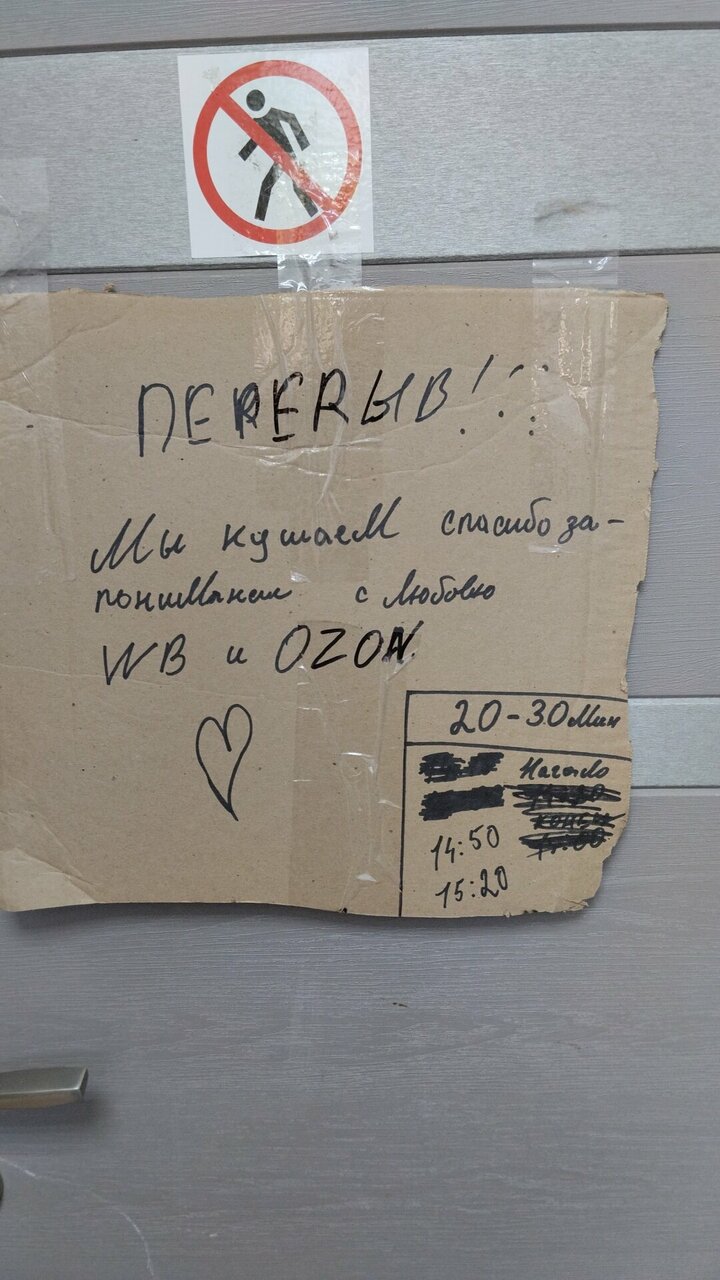 ПЕРЕРЫВ!!!
Мы кушаем спасибо за-
понимание с Любовью
WB и OZON
20-30 мин
Начало
14:50
15:20